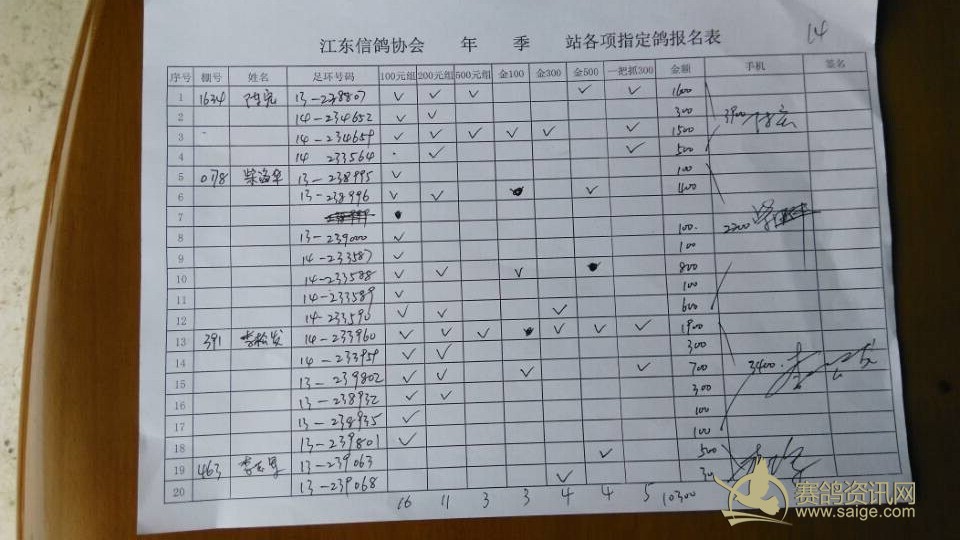 14
江东信鸽协会 年 季 站各项指定鸽报名表
序号 棚号 姓名 足环号码 100元组 200元组 500元组 金100 金300 金500 一把抓300 金额 手机 签名
1 1634 13-238807 ✓ ✓ ✓ ✓ ✓ 1600
2 14-234652 ✓ ✓ 300
3 14-234659 ✓ ✓ ✓ ✓ ✓ ✓ 1500 3900
4 14 233564 ✓ ✓ 500
5 078 13-238995 ✓ 100
6 13-238996 ✓ ✓ ✓ 400
7
8 13-239000 ✓ 100. 2200
9 14-233587 ✓ 100
10 14-233588 ✓ ✓ ✓ 800
11 14-233589 ✓ 100
12 14-233590 ✓ ✓ ✓ 600
13 391 李松发 14-233960 ✓ ✓ ✓ ✓ ✓ ✓ 1900
14 14-233959 ✓ ✓ 300
15 13-239802 ✓ ✓ ✓ ✓ 700 3400
16 13-238932 ✓ ✓ 300
17 13-238935 ✓ 100
18 13-239801 ✓ 100
19 463 13-239063 ✓ 500
20 13-239068 ✓
16 11 3 3 4 4 5 10300
赛鸽资讯网
www.saige.com